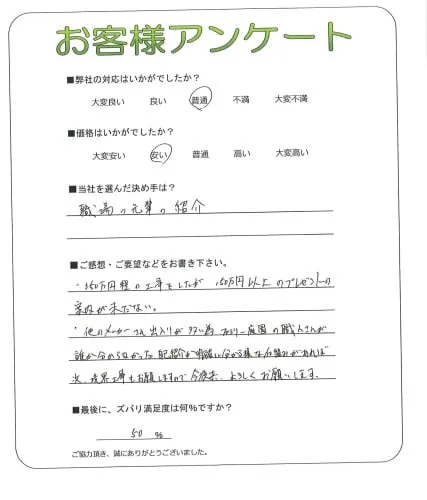 お客様アンケート
■弊社の対応はいかがでしたか？
大変良い 良い 普通 不満 大変不満
■価格はいかがでしたか？
大変安い 安い 普通 高い 大変高い
■当社を選んだ決め手は？
職場の先輩の紹介
■ご感想・ご要望などをお書き下さい。
・350万円程の工事をしたが 150万円以上のプレゼントの
案内が来てない。
・他のメーカーさん出入りが多い為 ファミリー庭園の職人さんが
誰か分からなかった 明確に分かる様な仕組みがあれば
次、工事もお願いしますので今後共、よろしくお願いします。
■最後に、ズバリ満足度は何％ですか？
50 ％
ご協力頂き、誠にありがとうございました。